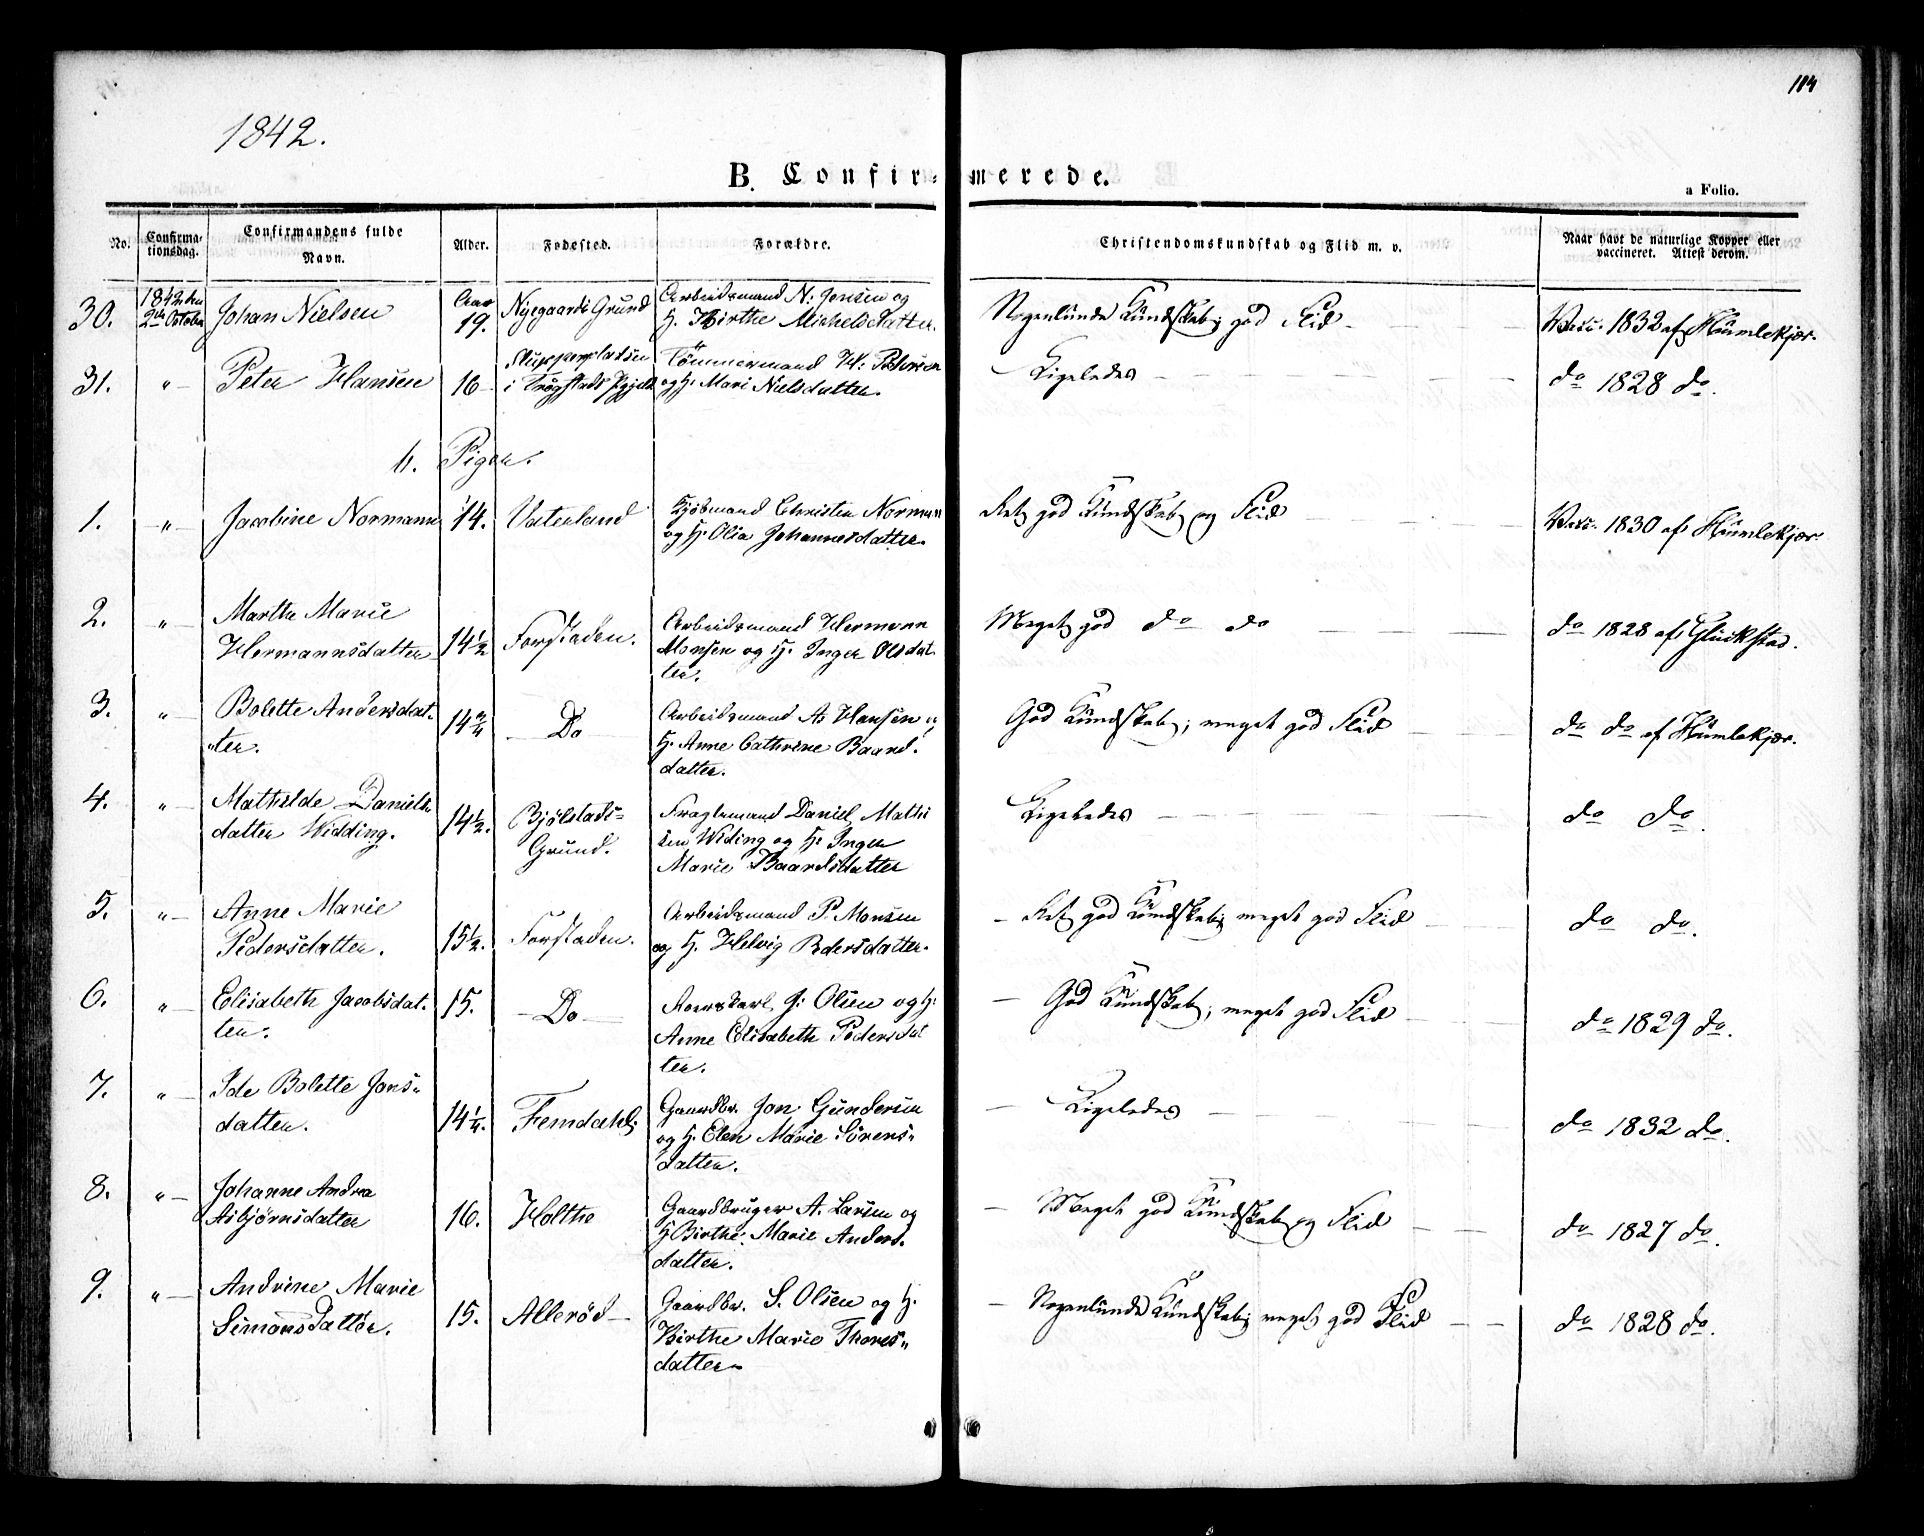 114
1842.
B. Confirmerede.
a Folio.
No. Confirmationsdag. Confirmandens fulde Navn. Alder. Fødested. Forældre. Christendomskundskab og Flid m. v. Naar havt de naturlige Kopper eller vaccineret. Attest derom.
30. 1842 den 2den October Johan Nielsen Aar 19. Nyegaards Grund Arbeidsmand N: Jensen og
H. Birthe Michelsdatter. Nogenlunde Kundskab; god Flid — Vacc. 1832 af Humlekjær.
31. " Peter Hansen 16 i Trøgstads Tømmermand H: Pedersen
og H. Mari Nielsdatter. Ligeledes — do 1828 do.
b. Piger.
1. " Jacobine Normann 14. Vaterland Christen Normann
og H. Olia Johannesdatter. Ret god Kundskab og Flid — Vacc. 1830 af Humlekjær.
2. " Marthe Marie
Hermannsdatter 14½ Forstaden. Arbeidsmand Hermann
Monsen og H. Inger Olsdat-
ter. Meget god do do — do 1828 af Glückstad.
3. " Bolette Andersdat-
ter. 14¾ Do Arbeidsmand A: Hansen og
H. Anne Cathrine Baard-
datter. God Kundskab; meget god Flid — do do af Humlekjær.
4. " Mathilde Daniels-
datter Widding. 14½. Bjølstads-
Grund. Daniel Mathi
sen Widing og H. Inger
Marie Baardsdatter Ligeledes — do do.
5. " Anne Marie
Pedersdatter. 15½. Forstaden. Arbeidsmand P. Monsen
og H. Helvig Pedersdatter. — Ret god Kundskab; meget god Flid — do do.
6. " Elisabeth Jacobsdat-
ter. 15. Do J: Olsen og H.
Anne Elisabeth Pedersdat
ter. — God Kundskab; meget god Flid — do 1829 do.
7. " Ide Bolette Jons-
datter. 14¼. Femdahl Gaardbr. Jon Gundersen
og H. Elen Marie Sørens-
datter. — Ligeledes — do 1832 do.
8. " Johanne Andrea
Asbjørnsdatter 16. Holthe Gaardbruger A. Larsen og
H Birthe Marie Anders-
datter. — Meget god Kundskab og Flid — do 1827 do.
9. " Andrine Marie
Simonsdatter. 15. Allerød Gaardbr. S. Olsen og H.
Birthe Marie Thores-
datter. — Nogenlunde Kundskab; meget god Flid — do 1828 do.